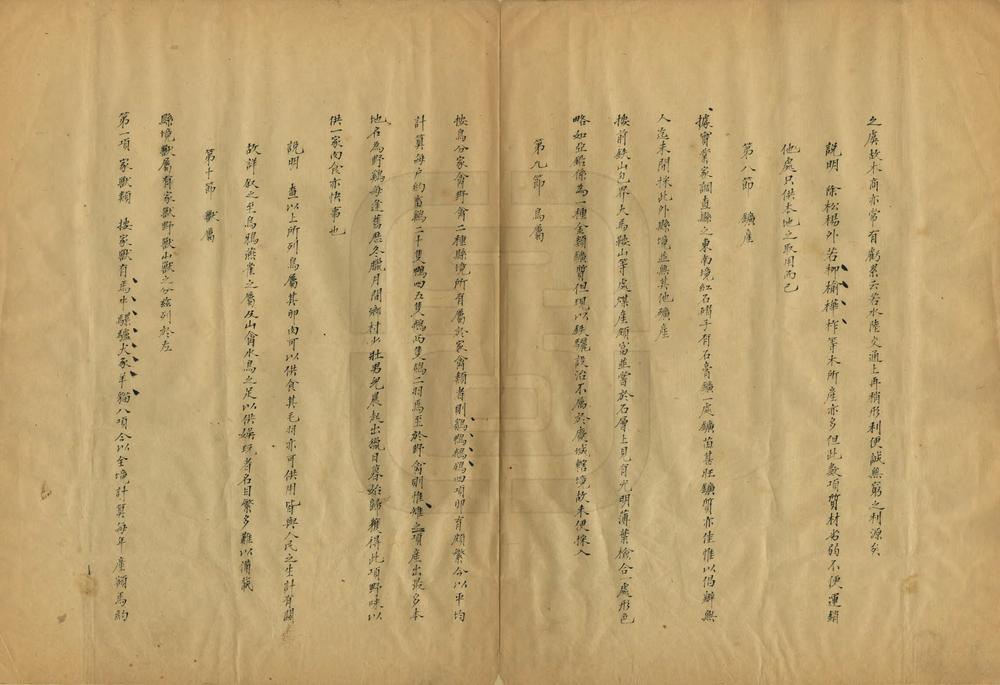 之虞故木商亦常有虧累云若水陸交通上再稍形利便誠無窮之利源矣
說明　除松楊外若柳榆樺柞等木所產亦多但此數項質材劣弱不便運銷
他處只供本地之取用而已
第八節　鑛產
據實業家調查縣之東南境紅石磖子有石膏鑛一處鑛苗甚旺鑛質亦佳惟以倡辦無
人迄未開採此外縣境並無其他鑛產
按前鉄山包界大馬鞍山等處煤產頗富並嘗於石層上見有光明薄葉檢合一處形色
略如亞鉛係為一種金類鑛質但現以鉄驪設治不屬於慶城轄境故未便採入
第九節　鳥屬
按鳥分家禽野禽二種縣境所有屬於家禽類者則鷄鴨鵝鴿四項卵育頗繁今以平均
計算每戶約畜鷄二十隻鴨四五隻鵝兩隻鴿二羽焉至於野禽則惟雉之一項產出最多本
地名為野鷄每逢舊歷冬臘月間鄉村少壯男兒晨起出獵日暮始歸獲得此項野味以
供一家肉食亦快事也
說明　查以上所列鳥屬其卵肉可以供食其毛羽亦可供用皆與人民之生計有關
故詳敘之至烏鴉燕雀之屬及山禽水鳥之足以供娛玩者名目繁多難以備載
第十節　獸屬
縣境獸屬有家獸野獸山獸之分茲列於左
第一項　家獸類　按家獸有馬牛騾驢犬豕羊貓八項今以全境計算每年產額馬約